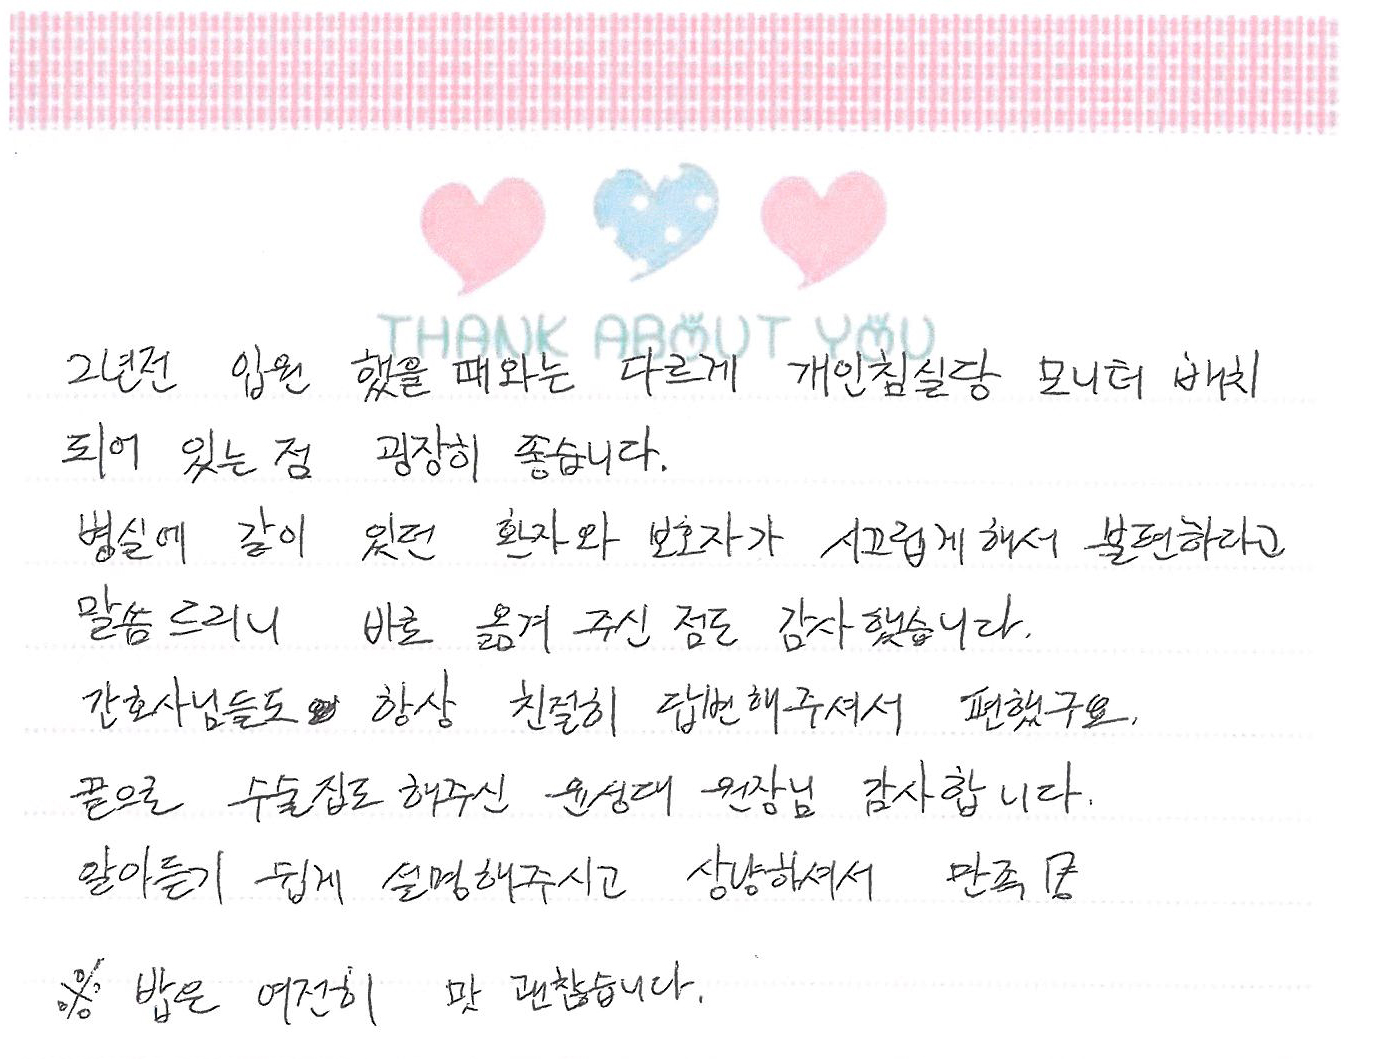 THANK ABOUT YOU
2년전 입원 했을 때와는 다르게 개인침실당 모니터 배치
되어 있는 점 굉장히 좋습니다.
병실에 같이 있던 환자와 보호자가 시끄럽게 해서 불편하라고
말씀드리니 바로 옮겨 주신 점도 감사했습니다.
간호사님들도 항상 친절히 답변해주셔서 편했구요.
끝으로 수술집도 해주신 윤성대 원장님 감사합니다.
알아듣기 쉽게 설명해주시고 상냥하셔서 만족
※ 밥은 여전히 맛 괜찮습니다.